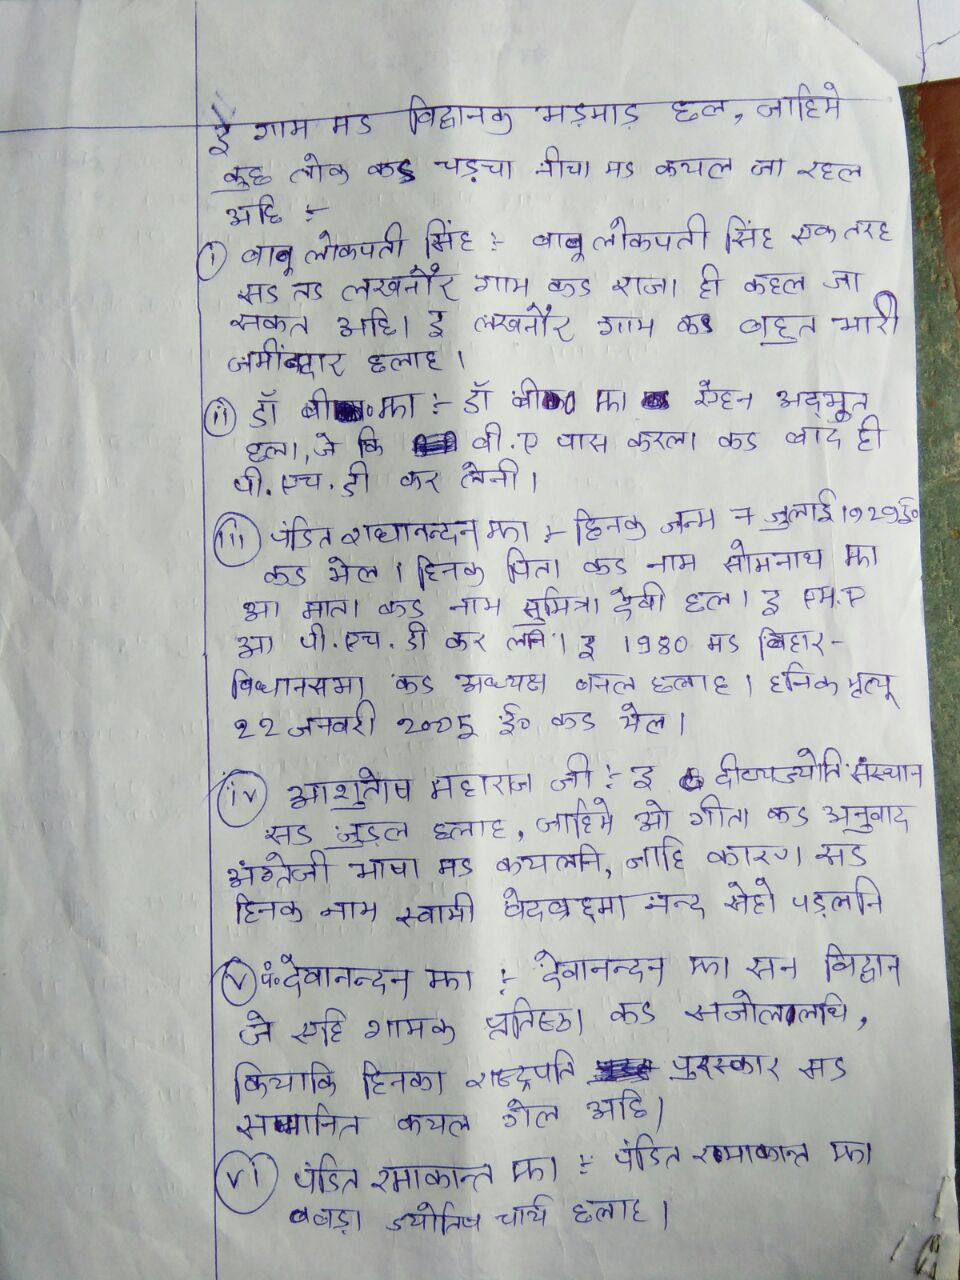 ई गाम मऽ विद्वानक भड़माड़ छल, जाहिमे
कुछ लोक कऽ चड़चा नीचा मऽ कयल जा रहल
अछि :-
(i) बाबू लोकपती सिंह :- बाबू लोकपती सिंह एक तरह
सऽ तऽ लखनौर गाम कऽ राजा ही कहल जा
सकत अछि। इ लखनौर गाम कऽ बहुत भारी
जमींनदार छलाह।
(ii) डॉ बी० झा :- डॉ बी० झा ऐहन अद्भुत
छला, जे कि बी.ए पास करला कऽ बाद ही
पी.एच.डी कर लेनी।
(iii) पंडित राधानन्दन झा :- हिनक जन्म 7 जुलाई 1929 ई०
कऽ भेल। हिनक पिता कऽ नाम सोमनाथ झा
आ माता कऽ नाम सुमित्रा देवी छल। इ एम.ए
आ पी.एच.डी कर लेनी। इ 1980 मऽ बिहार-
विधानसभा कऽ अध्यक्ष बनल छलाह। हनिक मृत्यू
22 जनवरी 2005 ई० कऽ भेल।
(iv) आशुतोष महाराज जी :- इ दीव्यज्योति संस्थान
सऽ जुड़ल छलाह, जाहिमे ओ गीता कऽ अनुवाद
अंग्रेजी भाषा मऽ कयलनि, जाहि कारण सऽ
हिनक नाम स्वामी वेदब्रह्मा नन्द सेहो पड़लनि
(v) पं० देवानन्दन झा :- देवानन्दन झा सन विद्वान
जे एहि गामक प्रतिष्ठा कऽ सजोलालथि,
कियाकि हिनका राष्ट्रपति पुरस्कार सऽ
सम्मानित कयल गेल अछि।
(vi) पंडित रमाकान्त झा :- पंडित रमाकान्त झा
बड़ा ज्योतिष चार्य छलाह।